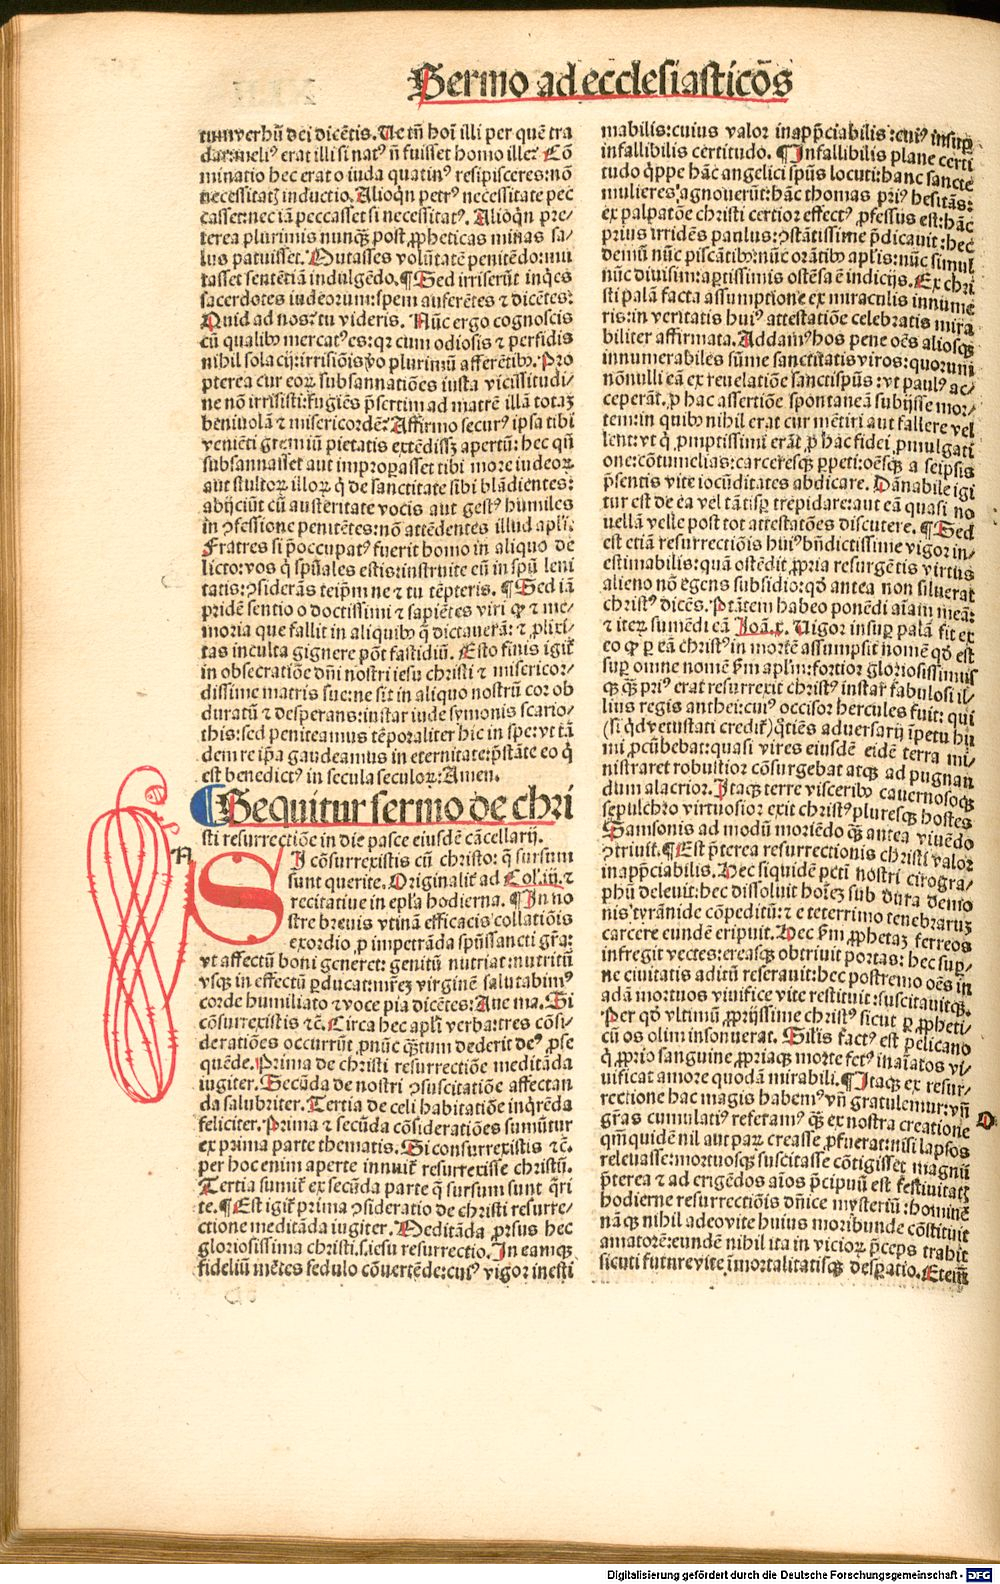 Sermo ad ecclesiasticos
tum verbū dei dicētis. Ue tn̄ hoī illi per quē tra
dar: meliꝰ erat illi si natꝰ n̄ fuisset homo ille. Cō
minatio hec erat o iuda quatinꝰ resipisceres: nō
necessitatꝭ inductio. Alioqn̄ petrꝰ necessitate pec
casset: nec iā peccasset si necessitatꝰ. Alioqn̄ pre⸗
terea plurimis nunqꝫ post ꝓpheticas minas sa⸗
lus patuisset. Mutasses volūtatē penitēdo: mu
tasset sententiā indulgēdo. ¶ Sed irriserūt inqͥes
sacerdotes iudeorum: spem auferētes ⁊ dicētes:
Quid ad nos: tu videris. Nūc ergo cognoscis
cū qualibꝰ mercatꝰ es: qꝛ cum odiosis ⁊ perfidis
nihil solacij: irrisiōis ꝟo plurimū afferētibꝰ. Pro
pterea cur eoꝝ subsannatiōes iusta vicissitudi⸗
ne nō irrisisti: fugiēs p̄sertim ad matrē illā totaꝫ
beniuolā ⁊ misericordē: Affirmo securꝰ ipsa tibi
venienti gremiū pietatis extēdissꝫ apertū: hec qn̄
subsannasset aut improperasset tibi more iudeoꝝ
aut stultoꝝ illoꝝ qͥ de sanctitate sibi blādientes:
abijciūt cū austeritate vocis aut gestꝰ humiles
in ꝯfessione penitētes: nō attēdentes illud apl̄i:
Fratres si p̄occupatꝰ fuerit homo in aliquo de
licto: vos qͥ spūales estis: instruite eū in spū leni
tatis: ꝯsiderās teip̄m ne ⁊ tu tēpteris. ¶ Sed iā
pridē sentio o doctissimi ⁊ sapiētes viri ꝙ ⁊ me⸗
moria que fallit in aliquibꝰ q̄ dictauerā: ⁊ ꝓlixi⸗
tas inculta gignere pōt fastidiū. Esto finis igiꝶ
in obsecratiōe dn̄i nostri iesu christi ⁊ misericor⸗
dissime matris sue: ne sit in aliquo nostrū cor ob
duratū ⁊ desperans: instar iude symonis scario⸗
this: sed peniteamus tēporaliter hic in spe: vt tā
dem re ip̄a gaudeamus in eternitate: p̄stāte eo qͥ
est benedictꝰ in secula seculoꝝ: Amen.
¶ Sequitur sermo de chri
sti resurrectiōe in die pasce eiusdē cācellarij.
SI cōsurrexistis cū christo: q̄ sursum
sunt querite. Originalit̄ ad Col. iij. ⁊
recitatiue in ep̄la hodierna. ¶ In no
stre breuis vtinā efficacis collatiōis
exordio ꝓ impetrāda spūssancti grā:
vt affectū boni generet: genitū nutriat: nutritū
vsqꝫ in effectū ꝑducat: mr̄eꝫ virginē salutabimꝰ
corde humiliato ⁊ voce pia dicētes: Aue ma. Si
cōsurrexistis ⁊c̄. Circa hec apl̄i verba: tres cōsi⸗
deratiōes occurrūt ꝓ nūc qꝫtum dederit deꝰ ꝓse
quēde. Prima de christi resurrectiōe meditāda
iugiter. Secūda de nostri ꝯsuscitatiōe affectan
da salubriter. Tertia de celi habitatiōe inqͥrēda
feliciter. Prima ⁊ secūda cōsideratiōes sumūtur
ex prima parte thematis. Si consurrexistis ⁊c̄.
per hoc enim aperte innuiꝶ resurrexisse christū.
Tertia sumiꝶ ex secūda parte q̄ sursum sunt q̄ri
te. ¶ Est igiꝶ prima ꝯsideratio de christi resurre⸗
ctione meditāda iugiter. Meditāda ꝓrsus hec
gloriosissima christi .s. iesu resurrectio. In eamqꝫ
fideliū mētes sedulo cōuertēde: cuiꝰ vigor inesti
mabilis: cuius valor inapp̄ciabilis: cuiꝰ insuꝑ
infallibilis certitudo. ¶ Infallibilis plane certi
tudo qͥppe hāc angelici spūs locuti: hanc sancte
mulieres agnouerūt: hāc thomas priꝰ hesitās:
ex palpatōe christi certior effectꝰ ꝓfessus est: hāc
prius irridēs paulus: ꝯstātissime p̄dicauit: hec
demū nūc piscātibꝰ: nūc orātibꝰ apl̄is: nūc simul
nūc diuisim: aꝑtissimis ostēsa ē indicijs. Ex chri
sti palā facta assumptione ex miraculis innume
ris: in veritatis huiꝰ attestatiōe celebratis mira
biliter affirmata. Addamꝰ hos pene oēs aliosqꝫ
innumerabiles sūme sanctitatis viros: quorum
nōnulli eā ex reuelatiōe sanctispūs: vt paulꝰ ac⸗
ceperāt. ꝓ hac assertiōe spontaneam subijsse mor⸗
tem: in quibꝰ nihil erat cur mētiri aut fallere vel
lent: vt qͥ ꝓmptissimi erāt ꝓ hac fidei ꝓmulgati
one: cōtumelias: carceresqꝫ ꝑpeti: oēsqꝫ a seipsis
p̄sentis vite iocūditates abdicare. Dānabile igi
tur est de ea vel tātisꝑ trepidare: aut eā quasi no
uellā velle post tot attestatōes discutere. ¶ Sed
est etiā resurrectiōis huiꝰ bn̄dictissime vigor in⸗
estimabilis: quā ostēdit ꝓpria resurgētis virtus
alieno nō egens subsidio: qd̄ antea non siluerat
christꝰ dicēs. Ptātem habeo ponēdi aīam meā:
⁊ iteꝝ sumēdi eā Joā. x. Uigor insuꝑ palā fit ex
eo ꝙ ꝑ eā christꝰ in mortē assumpsit nomē qd̄ est
suꝑ omne nomē ẜm apl̄m: fortior gloriosissimus
qꝫ qꝫ priꝰ erat resurrexit christꝰ instar fabulosi il⸗
lius regis anthei: cuiꝰ occisor hercules fuit: qui
(si qͥd vetustati crediꝶ) qͦtiēs aduersarij īpetu hu
mi ꝓcūbebat: quasi vires eiusdē eidē terra mi⸗
nistraret robustior cōsurgebat atqꝫ ad pugnan
dum alacrior. Itaqꝫ terre visceribꝰ cauernosoqꝫ
sepulchro virtuosior exit christꝰ pluresqꝫ hostes
Samsonis ad modū moriēdo qꝫ antea viuēdo
ꝯtriuit. ¶ Est p̄terea resurrectionis christi valor
inapp̄ciabilis. Hec siquidē peti nostri cirogra⸗
phū deleuit: hec dissoluit hoīeꝫ sub dura demo
nis tyrānide cōpeditū: ⁊ e teterrimo tenebraruꝫ
carcere eundē eripuit. Hec ẜm ꝓphetaꝫ ferreos
infregit vectes: ereasqꝫ obtriuit portas: hec suꝑ⸗
ne ciuitatis aditū reserauit: hec postremo oēs in
adā mortuos viuifice vite restituit: suscitauitqꝫ.
Per qd̄ vltimū ꝓprijssime christꝰ sicut ꝑ ꝓpheti⸗
cū os olim insonuerat. Silis factꝰ est pelicano
qͥ ꝓprio sanguine ꝓpriaqꝫ morte fetꝰ inaīatos vi⸗
uificat amore quodā mirabili. ¶ Itaqꝫ ex resur⸗
rectione hac magis habemꝰ vn̄ gratulemur: vn̄
grās cumulatiꝰ referamꝰ qꝫ ex nostra creatione
qm̄ quidē nil aut paꝝ creasse ꝓfuerat: nisi lapsos
releuasse: mortuosqꝫ suscitasse cōtigisset magnū
p̄terea ⁊ ad erigēdos aīos p̄cipuū est festiuitatꝭ
hodierne resurrectiōis dn̄ice mysteriū: hominē
nāqꝫ nihil adeo vite huius moribunde cōstituit
amatorē: eundē nihil ita in vicioꝝ p̄ceps trahit
sicuti future vite īmortalitatisqꝫ desꝑatio. Etem̄
N
O
Digitalisierung gefördert durch die Deutsche Forschungsgemeinschaft - DFG